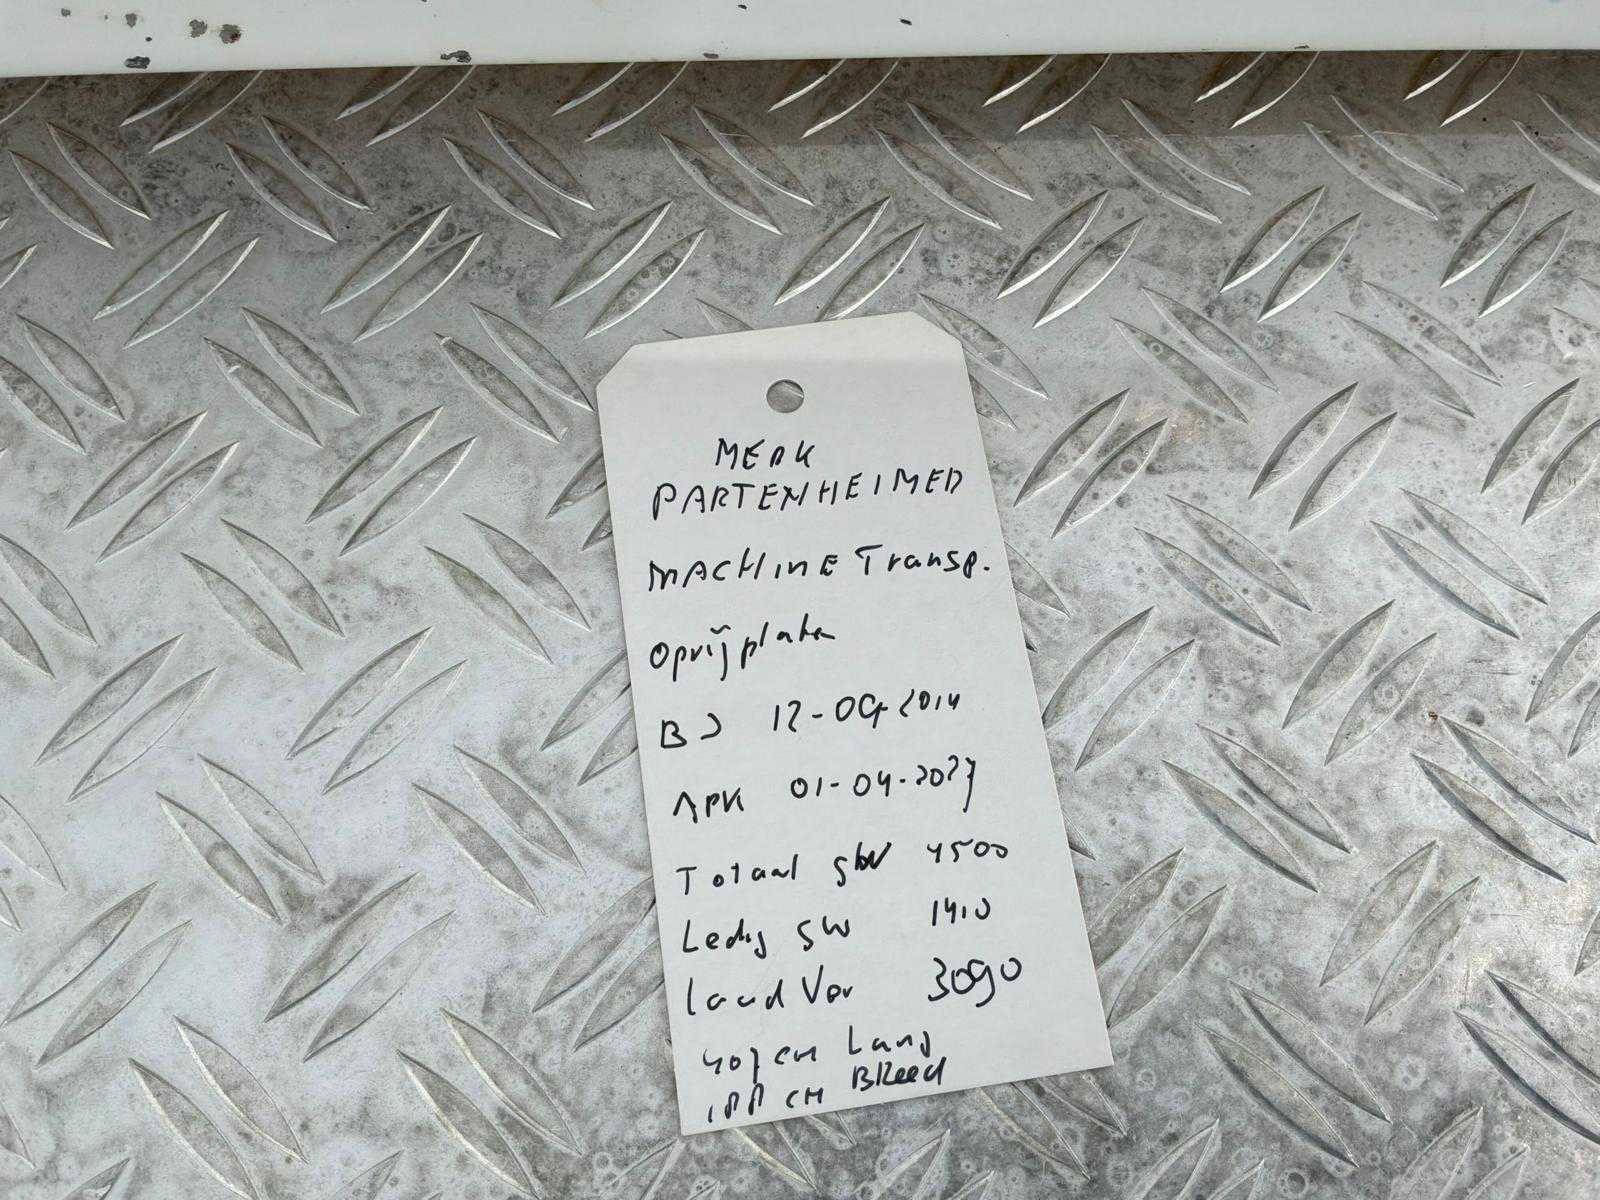 MERK
PARTENHEIMER
MACHINE Transp.
Oprij platen
BJ 12-09-2014
APK 01-04-2027
Totaal gw 4500
Ledig gw 1410
laad Ver 3090
407 CM Lang
188 CM BReed